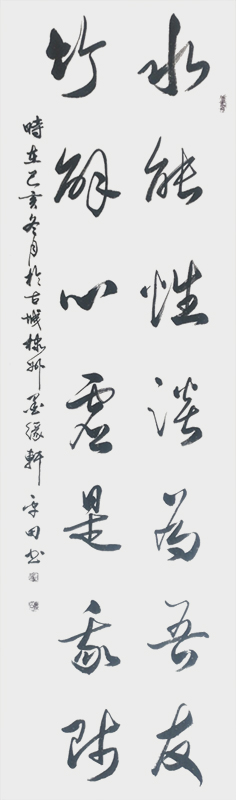 水能性淡為吾友
竹解心虛是我師
時在己亥冬月於古城棣州墨緣軒平田书